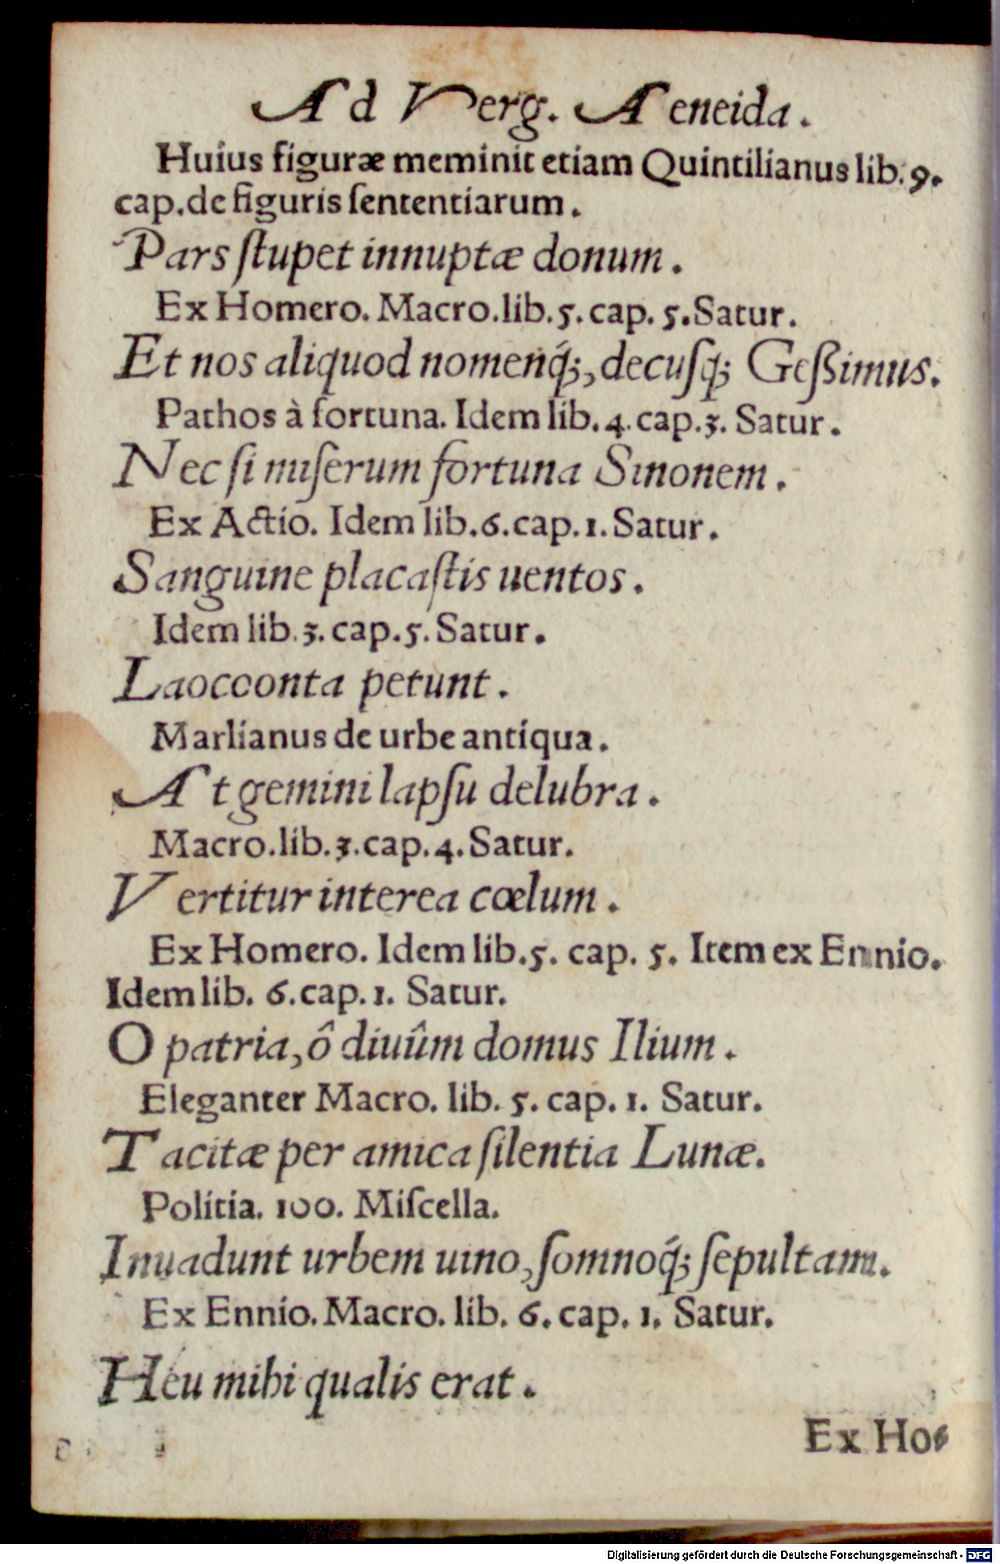 Ad Verg. Aeneida.
Huius figuræ meminit etiam Quintilianus lib. 9.
cap. de figuris ſententiarum.
Pars ſtupet innuptæ donum.
Ex Homero. Macro. lib. 5. cap. 5. Satur.
Et nos aliquod nomenq́;, decuſq́; Geßimus.
Pathos à fortuna. Idem lib. 4. cap. 3. Satur.
Nec ſi miſerum fortuna Sinonem.
Ex Actio. Idem lib. 6. cap. 1. Satur.
Sanguine placaſtis uentos.
Idem lib. 3. cap. 5. Satur.
Laocconta petunt.
Marlianus de urbe antiqua.
At gemini lapſu delubra.
Macro. lib. 3. cap. 4. Satur.
Vertitur interea cœlum.
Ex Homero. Idem lib. 5. cap. 5. Item ex Ennio.
Idem lib. 6. cap. 1. Satur.
O patria, ô diuûm domus Ilium.
Eleganter Macro. lib. 5. cap. 1. Satur.
Tacitæ per amica ſilentia Lunæ.
Politia. 100. Miſcella.
Inuadunt urbem uino, ſomnoq́; ſepultam.
Ex Ennio. Macro. lib. 6. cap. 1. Satur.
Heu mihi qualis erat.
Ex Ho-
Digitalisierung gefördert durch die Deutsche Forschungsgemeinschaft - DFG